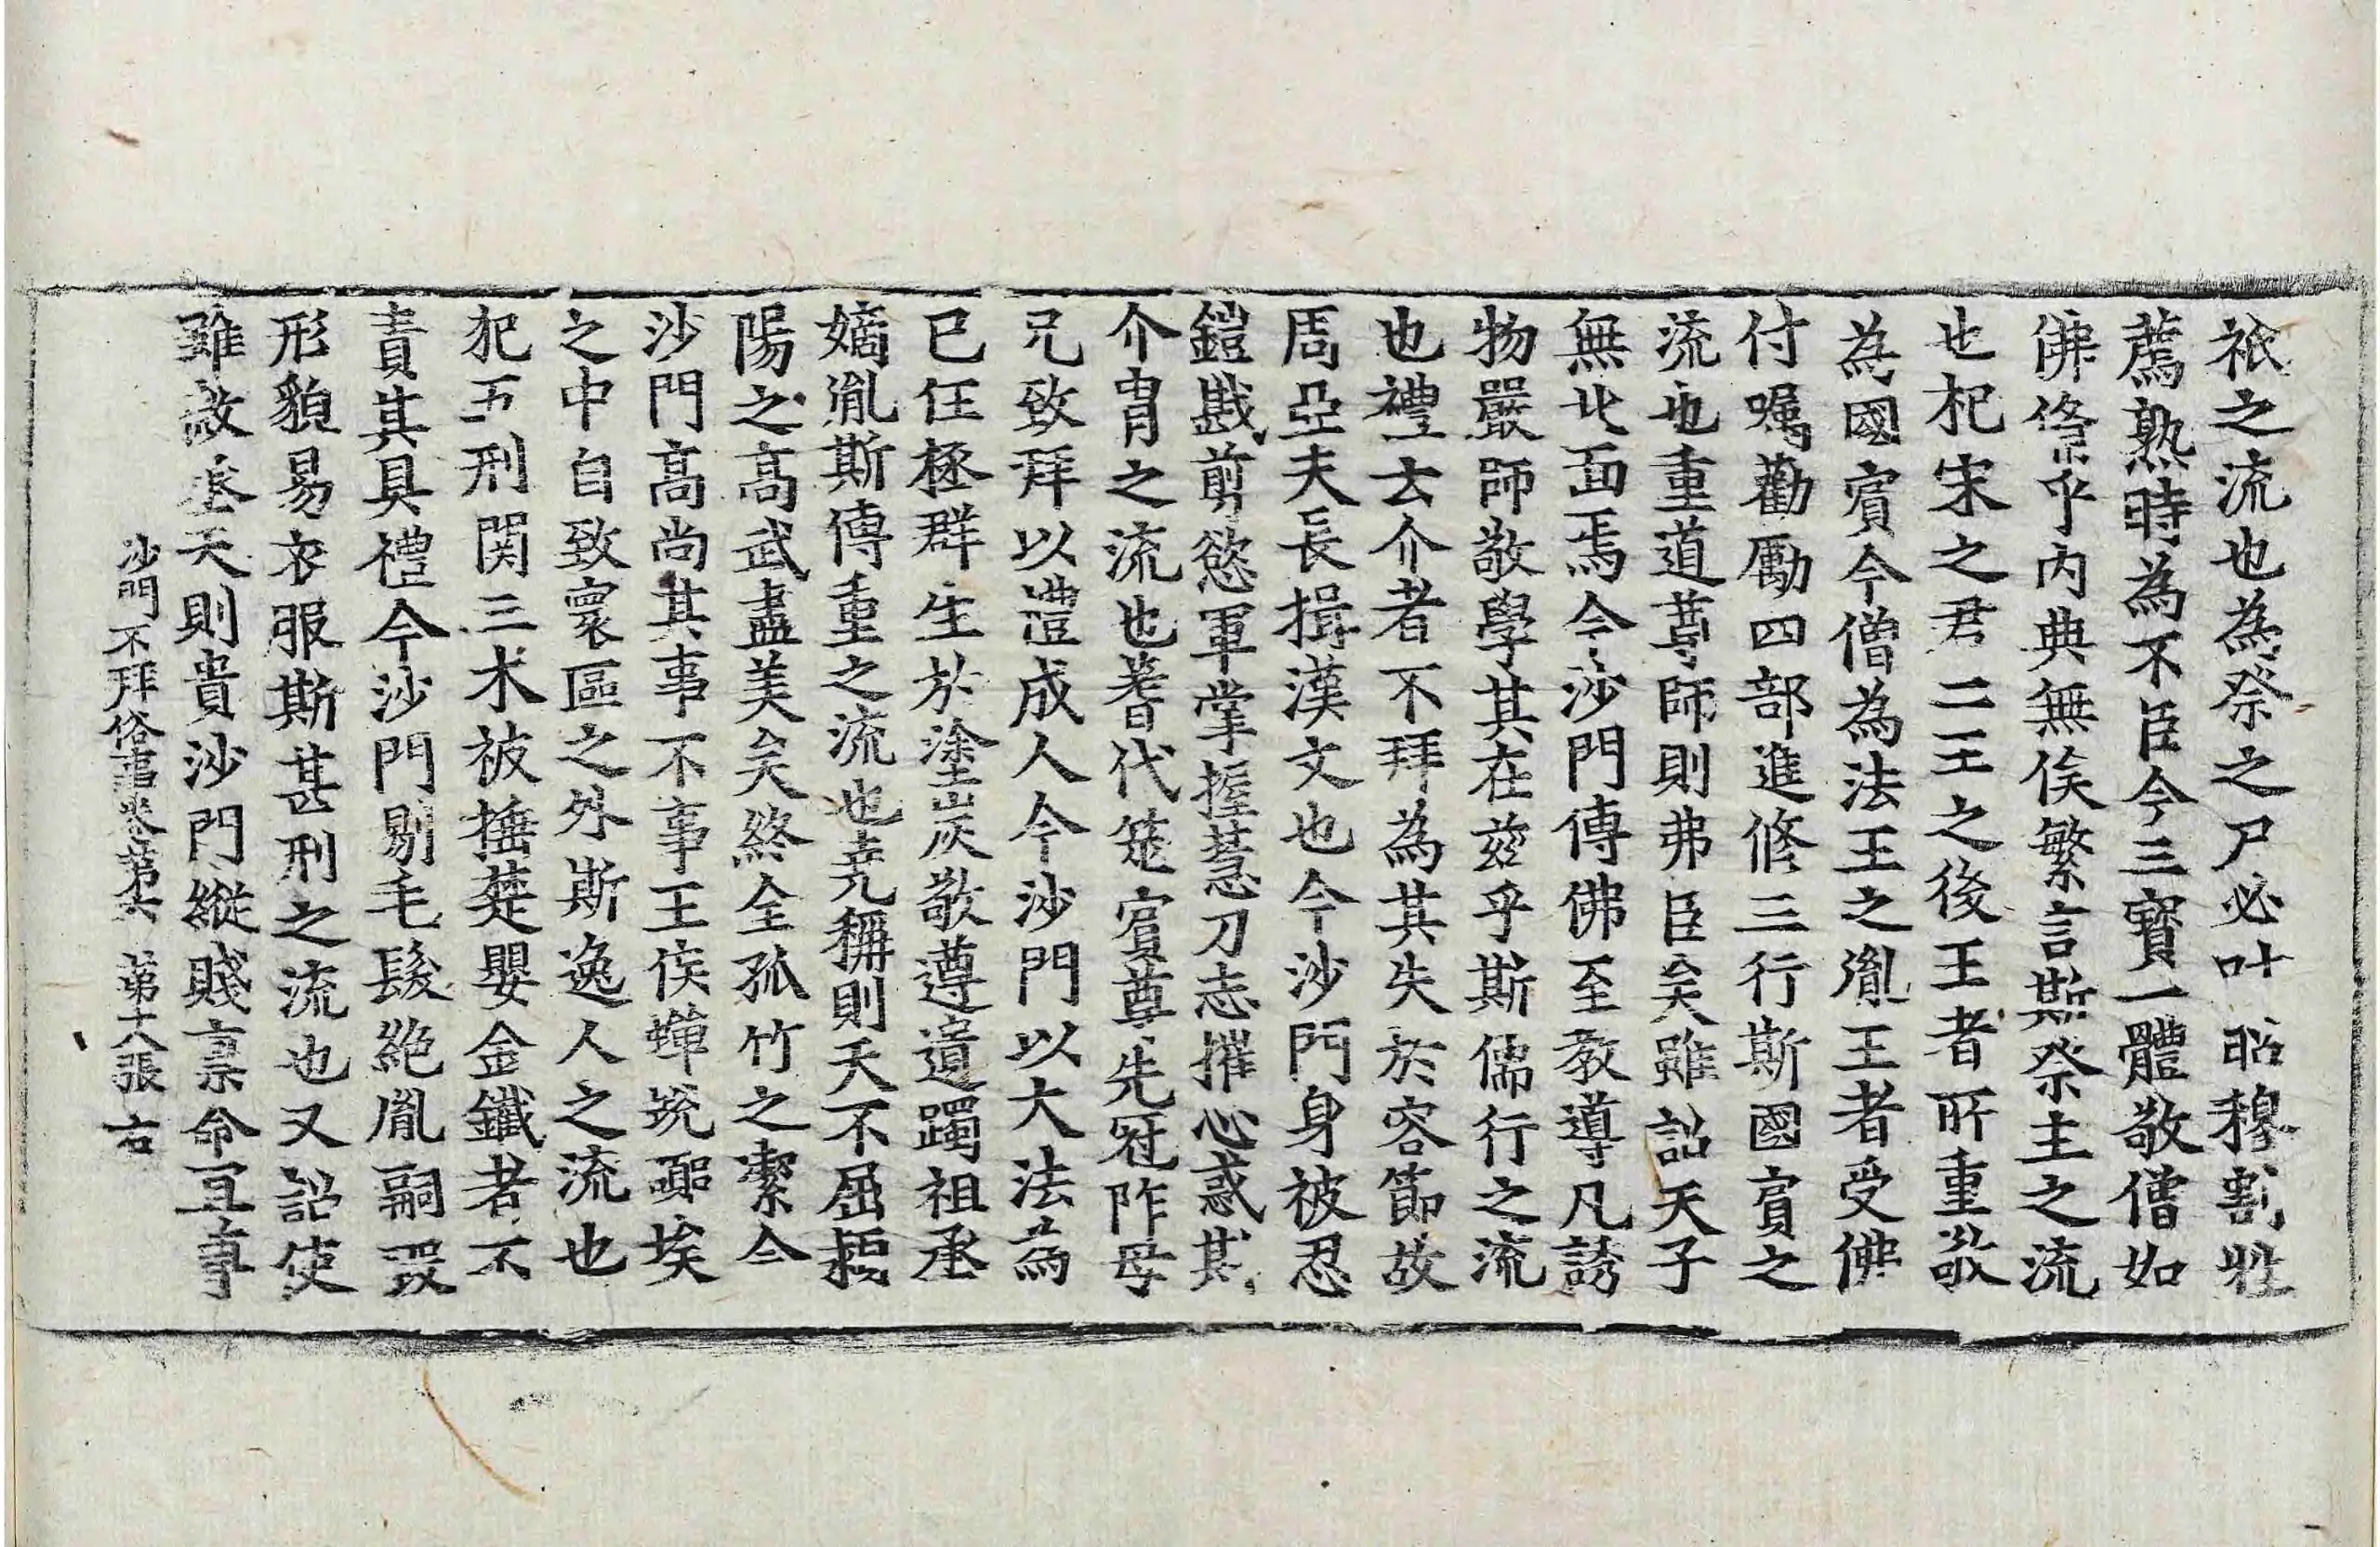 祇之流也為祭之尸必叶昭穆割牲
薦熟時為不臣今三寶一體敬僧如
佛俻乎内典無俟繁言斯祭主之流
也杞宋之君二王之後王者所重敬
為國賓今僧為法王之胤王者受佛
付囑勸勵四部進修三行斯國賓之
流也重道尊師則弗臣矣雖詔天子
無北面焉今沙門傳佛至教導凡誘
物嚴師敬學其在兹乎斯儒行之流
也禮云介者不拜為其失於容節故
周亞夫長揖漢文也今沙門身被忍
鎧戡剪慾軍掌握慧刀志摧心惑斯
介胄之流也蓍代筮賓尊先冠阼母
兄致拜以禮成人今沙門以大法為
已任拯群生於塗炭敬遵遺躅祖承
嫡胤斯傳重之流也堯稱則天不屈頴
陽之高武盡美矣終全孤竹之潔今
沙門高尚其事不事王侯蟬蛻囂埃
之中自致寰區之外斯逸人之流也
犯五刑関三木被捶楚嬰金鐵者不
責其具禮今沙門剔毛髮絶胤嗣毀
形貌易衣服斯甚刑之流也又詔使
雖微承天則貴沙門縱賤禀命宜尊
沙門不拜俗事卷第六　第十八張　右